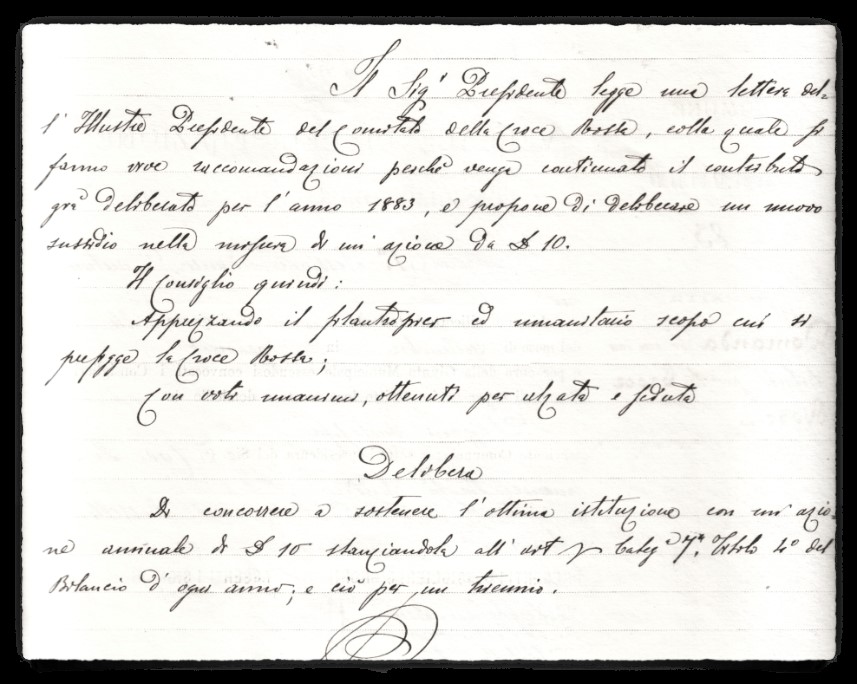 Il Sig.r Presidente legge una lettera del=
l'Illustre Presidente del Comitato della Croce Rossa, colla quale si
fanno vive raccomandazioni perché venga continuato il contributo
già deliberato per l'anno 1883, e propone di deliberare un nuovo
sussidio nella misura di un'azione da £ 10.
Il Consiglio quindi:
Apprezzando il filantropico ed umanitario scopo cui si
prefigge la Croce Rossa;
Con voti unanimi, ottenuti per alzata e seduta
Delibera
Di concorrere a sostenere l'ottima istituzione con un'azio=
ne annuale di £ 10 stanziandola all'art Categ.a 7.a, Titolo 4° del
Bilancio d'ogni anno; e ciò per un triennio.